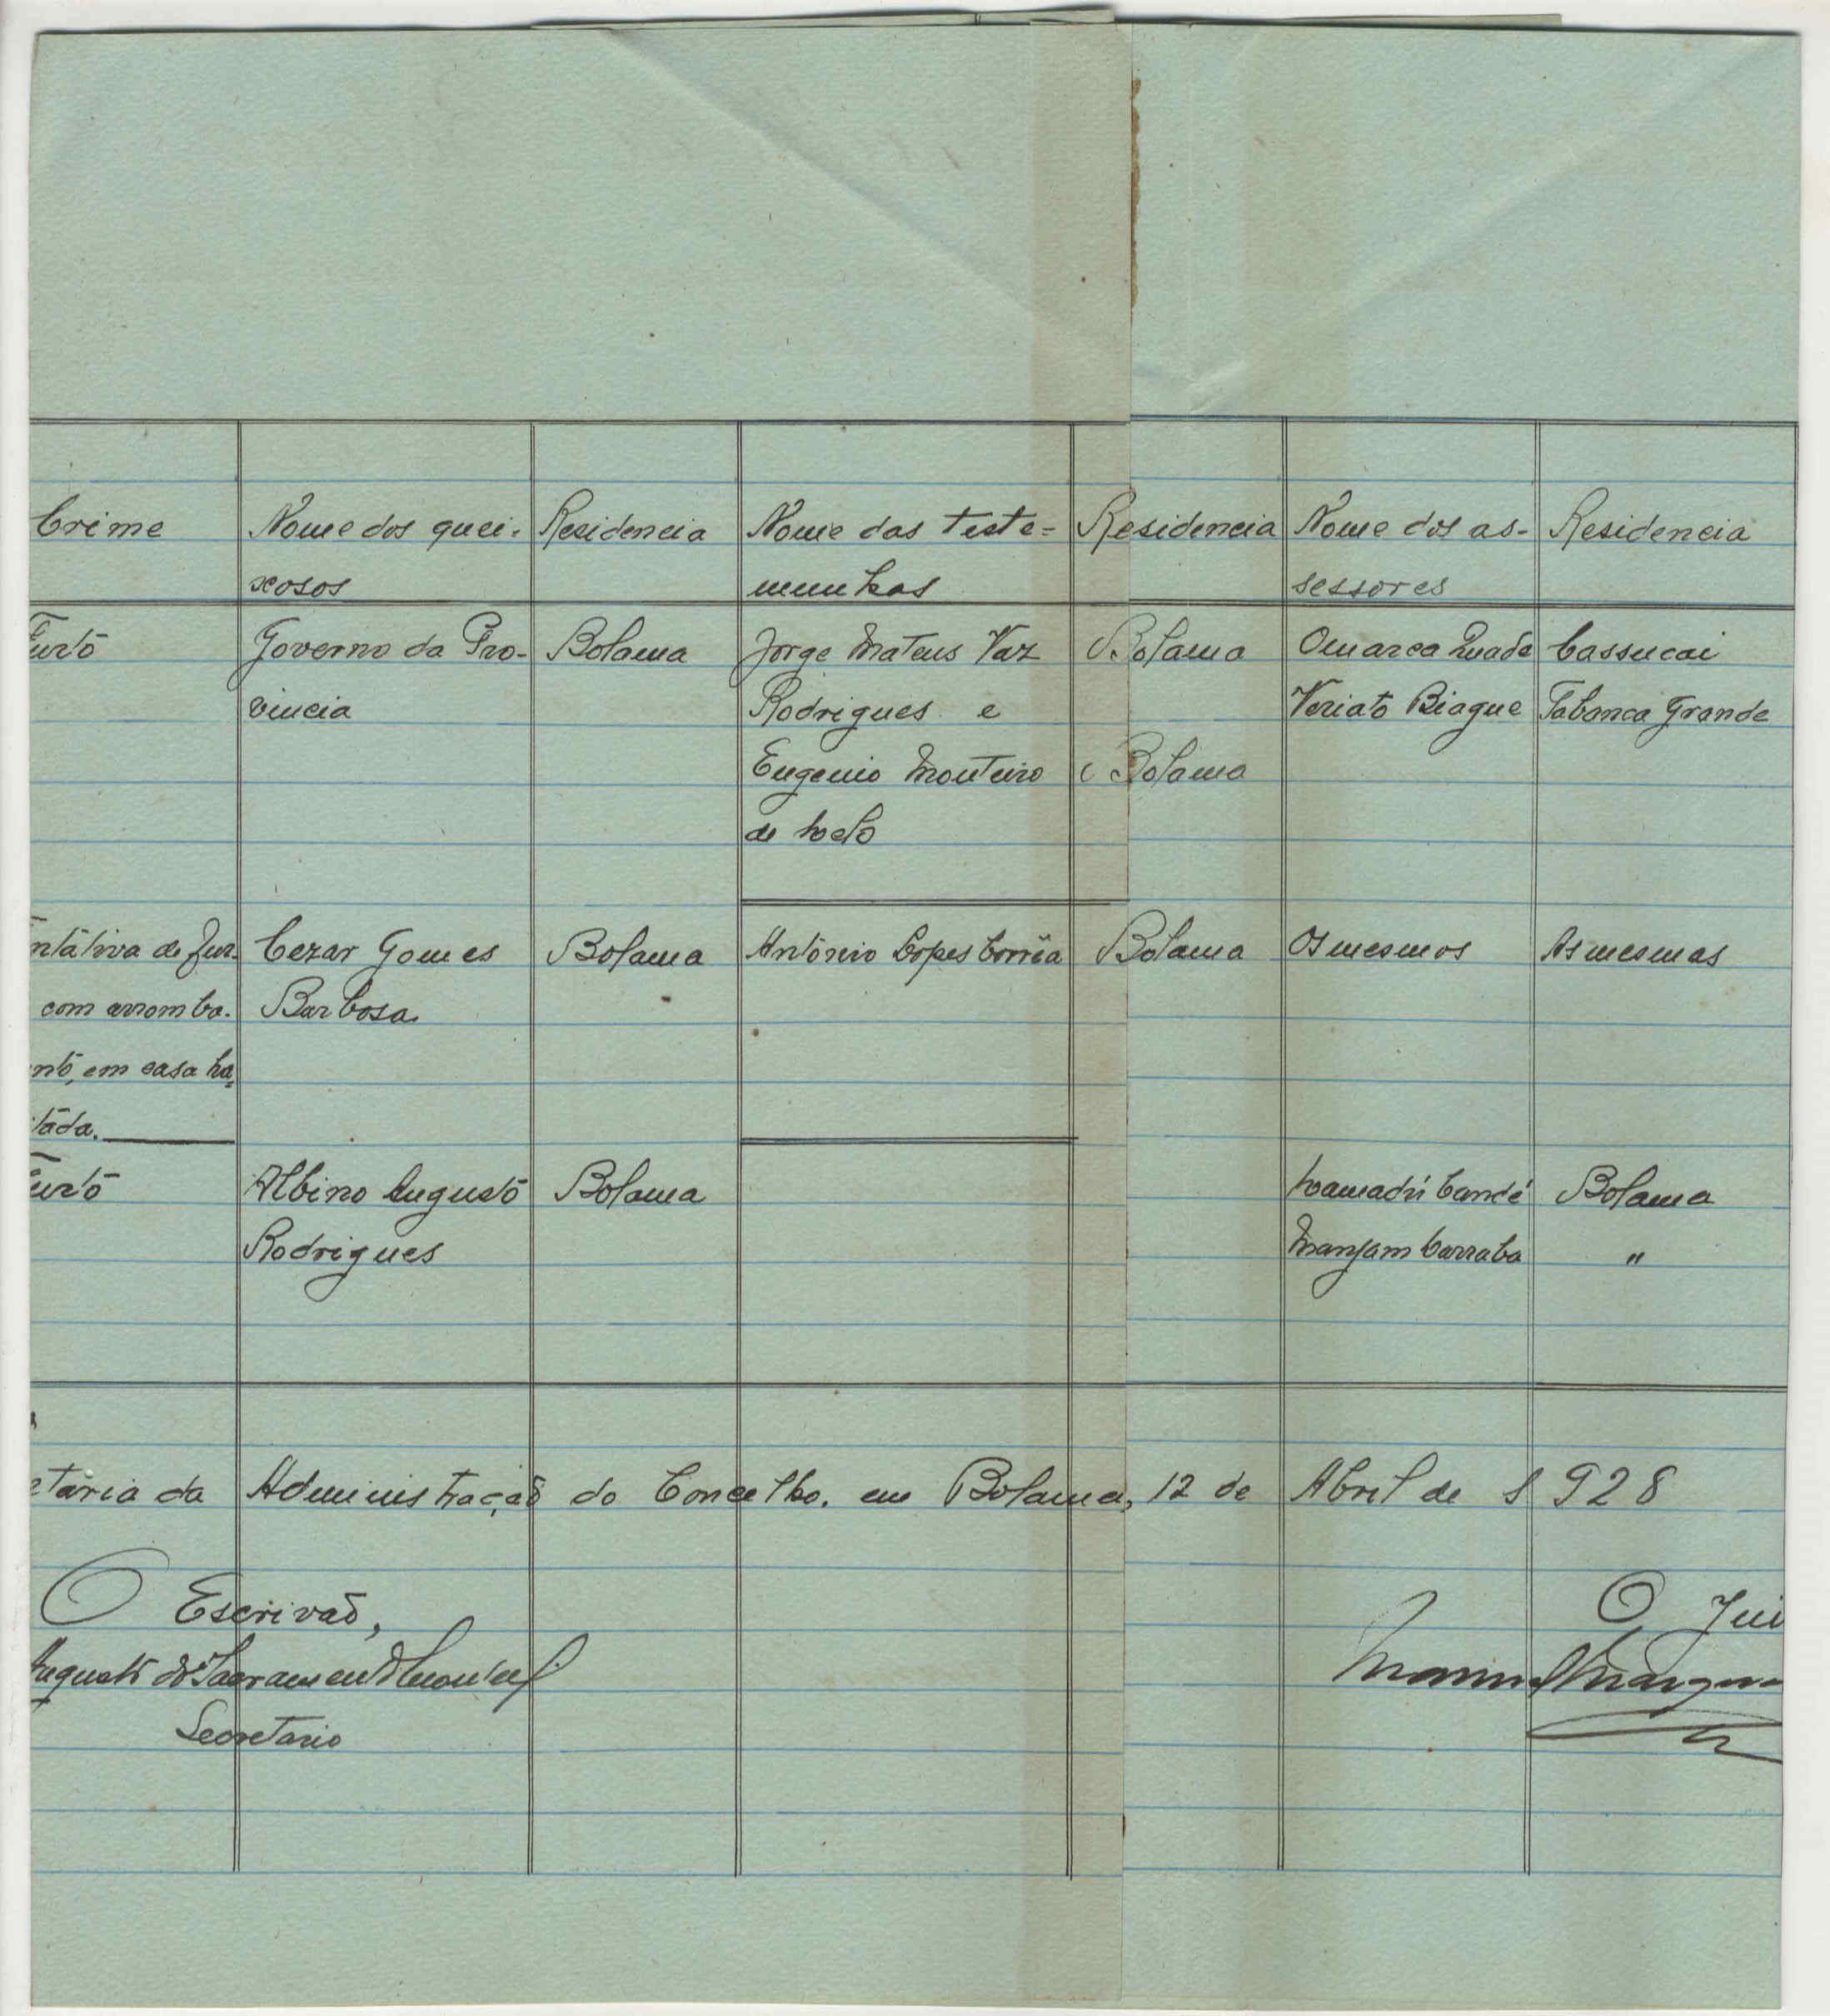 Crime Nome dos quei- Residencia Nome das teste= Residencia Nome dos as- Residencia
xosos munhas sessores
Furto Governo da Pro- Bolama Jorge Mateus Vaz Bolama Omarca Cassucai
vincia Rodrigues e Veriato Biague Tabanca Grande
Eugenio Monteiro Bolama
de Melo
ntativa de fur- Cezar Gomes Bolama António Lopes Corrêa Bolama Os mesmos As mesmas
com arromba- Barbosa
nto, em casa ha=
itada.
Furto Albino Augusto Bolama Mamadú Candé Bolama
Rodrigues Manjam Carraba "
etaria da Administração do Concelho, em Bolama, 12 de Abril de 1928
O Escrivão, O Jui
Augusto do Sacramento Monteiro Manuel
Secretario